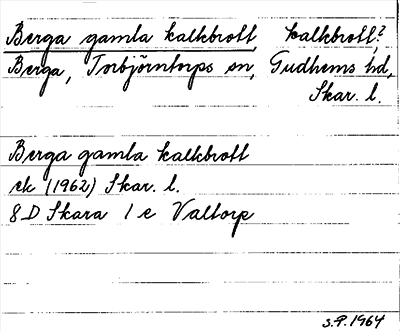 Berga gamla kalkbrott kalkbrott,?
Berga, Torbjörntorps sn, Gudhems hd,
Skar. l.
Berga gamla kalkbrott
ek (1962) Skar. l.
8 D Skara 1 e Valtorp
S.P. 1964